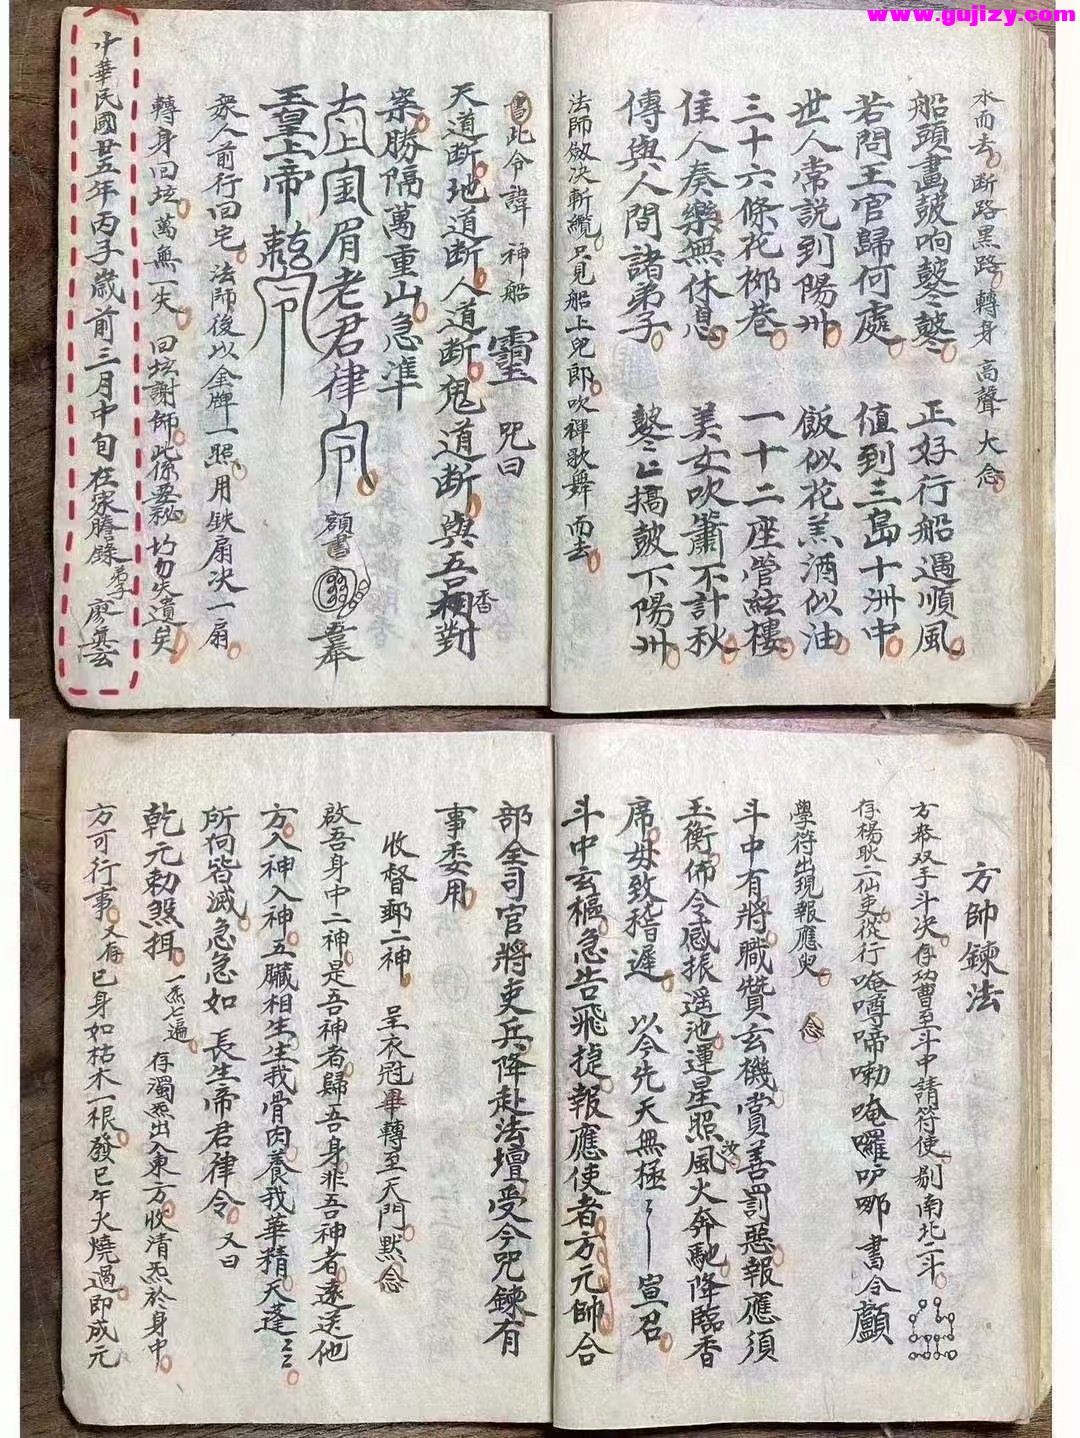 www.gujizy.com
水而去。断路黑路。轉身 高聲大念。
船頭畫鼓响鼕鼕。 正好行船遇順風。
若問王官歸何處。 值到三島十洲中。
世人常説到陽州。 飯似花羔酒似油。
三十六條花柳巷。 一十二座管絃樓。
佳人奏樂無休息。 美女吹簫不計秋。
傳與人間諸弟子。 鼕鼕上搞鼓下陽州。
法師敛决斬纜。只見船上兒郎。吹禅歌舞而去。
書此令諱 神船 靈 咒曰
天道断。地道断。人道断。鬼道断。與吾香相對
案。勝隔萬重山。急準
太上 眉老君律令。 額書 吾奉
玉皇上帝 敕令
衆人前行回宅。法師後以金牌一照。用铁扇决一扇。
轉身回坛。萬無一失。回坛謝師。此係要秘。切勿失遺矣。
中華民國廿五年丙子歲前三月中旬在家謄錄 弟子 廖
方帥鍊法
方發双手斗决。存功曹至斗中請符使。剔南北二斗。
存楊耿二仙吏。從行 唵 啼 唵囉 哪 書令
學符出現報應 。 念
斗中有將。職贊玄機。賞善罰惡。報應須
玉衡。佈令感振。遥池運星。照汝風火。奔馳降臨香
席。毋致稽遲。 以今先天無極 宣召。
斗中玄樞。急告飛捷。報應使者。方元帥合
部全司官將吏兵。降赴法壇。受令咒鍊。有
事委用。
收督郵二神。 呈衣冠畢轉至天門。默念
啟吾身中二神。是吾神者。歸吾身。非吾神者。遠送他
方。入神入神。五臟相生。生我骨肉。養我華精。天蓬
所向皆滅。急急如 長生帝君律令。 又曰
乾元勅煞摄。 一炁七遍。 存濁炁出。入東方。收清炁於身中。
方可行事。又存 巳身如枯木一根。發巳午火燒過。即成元